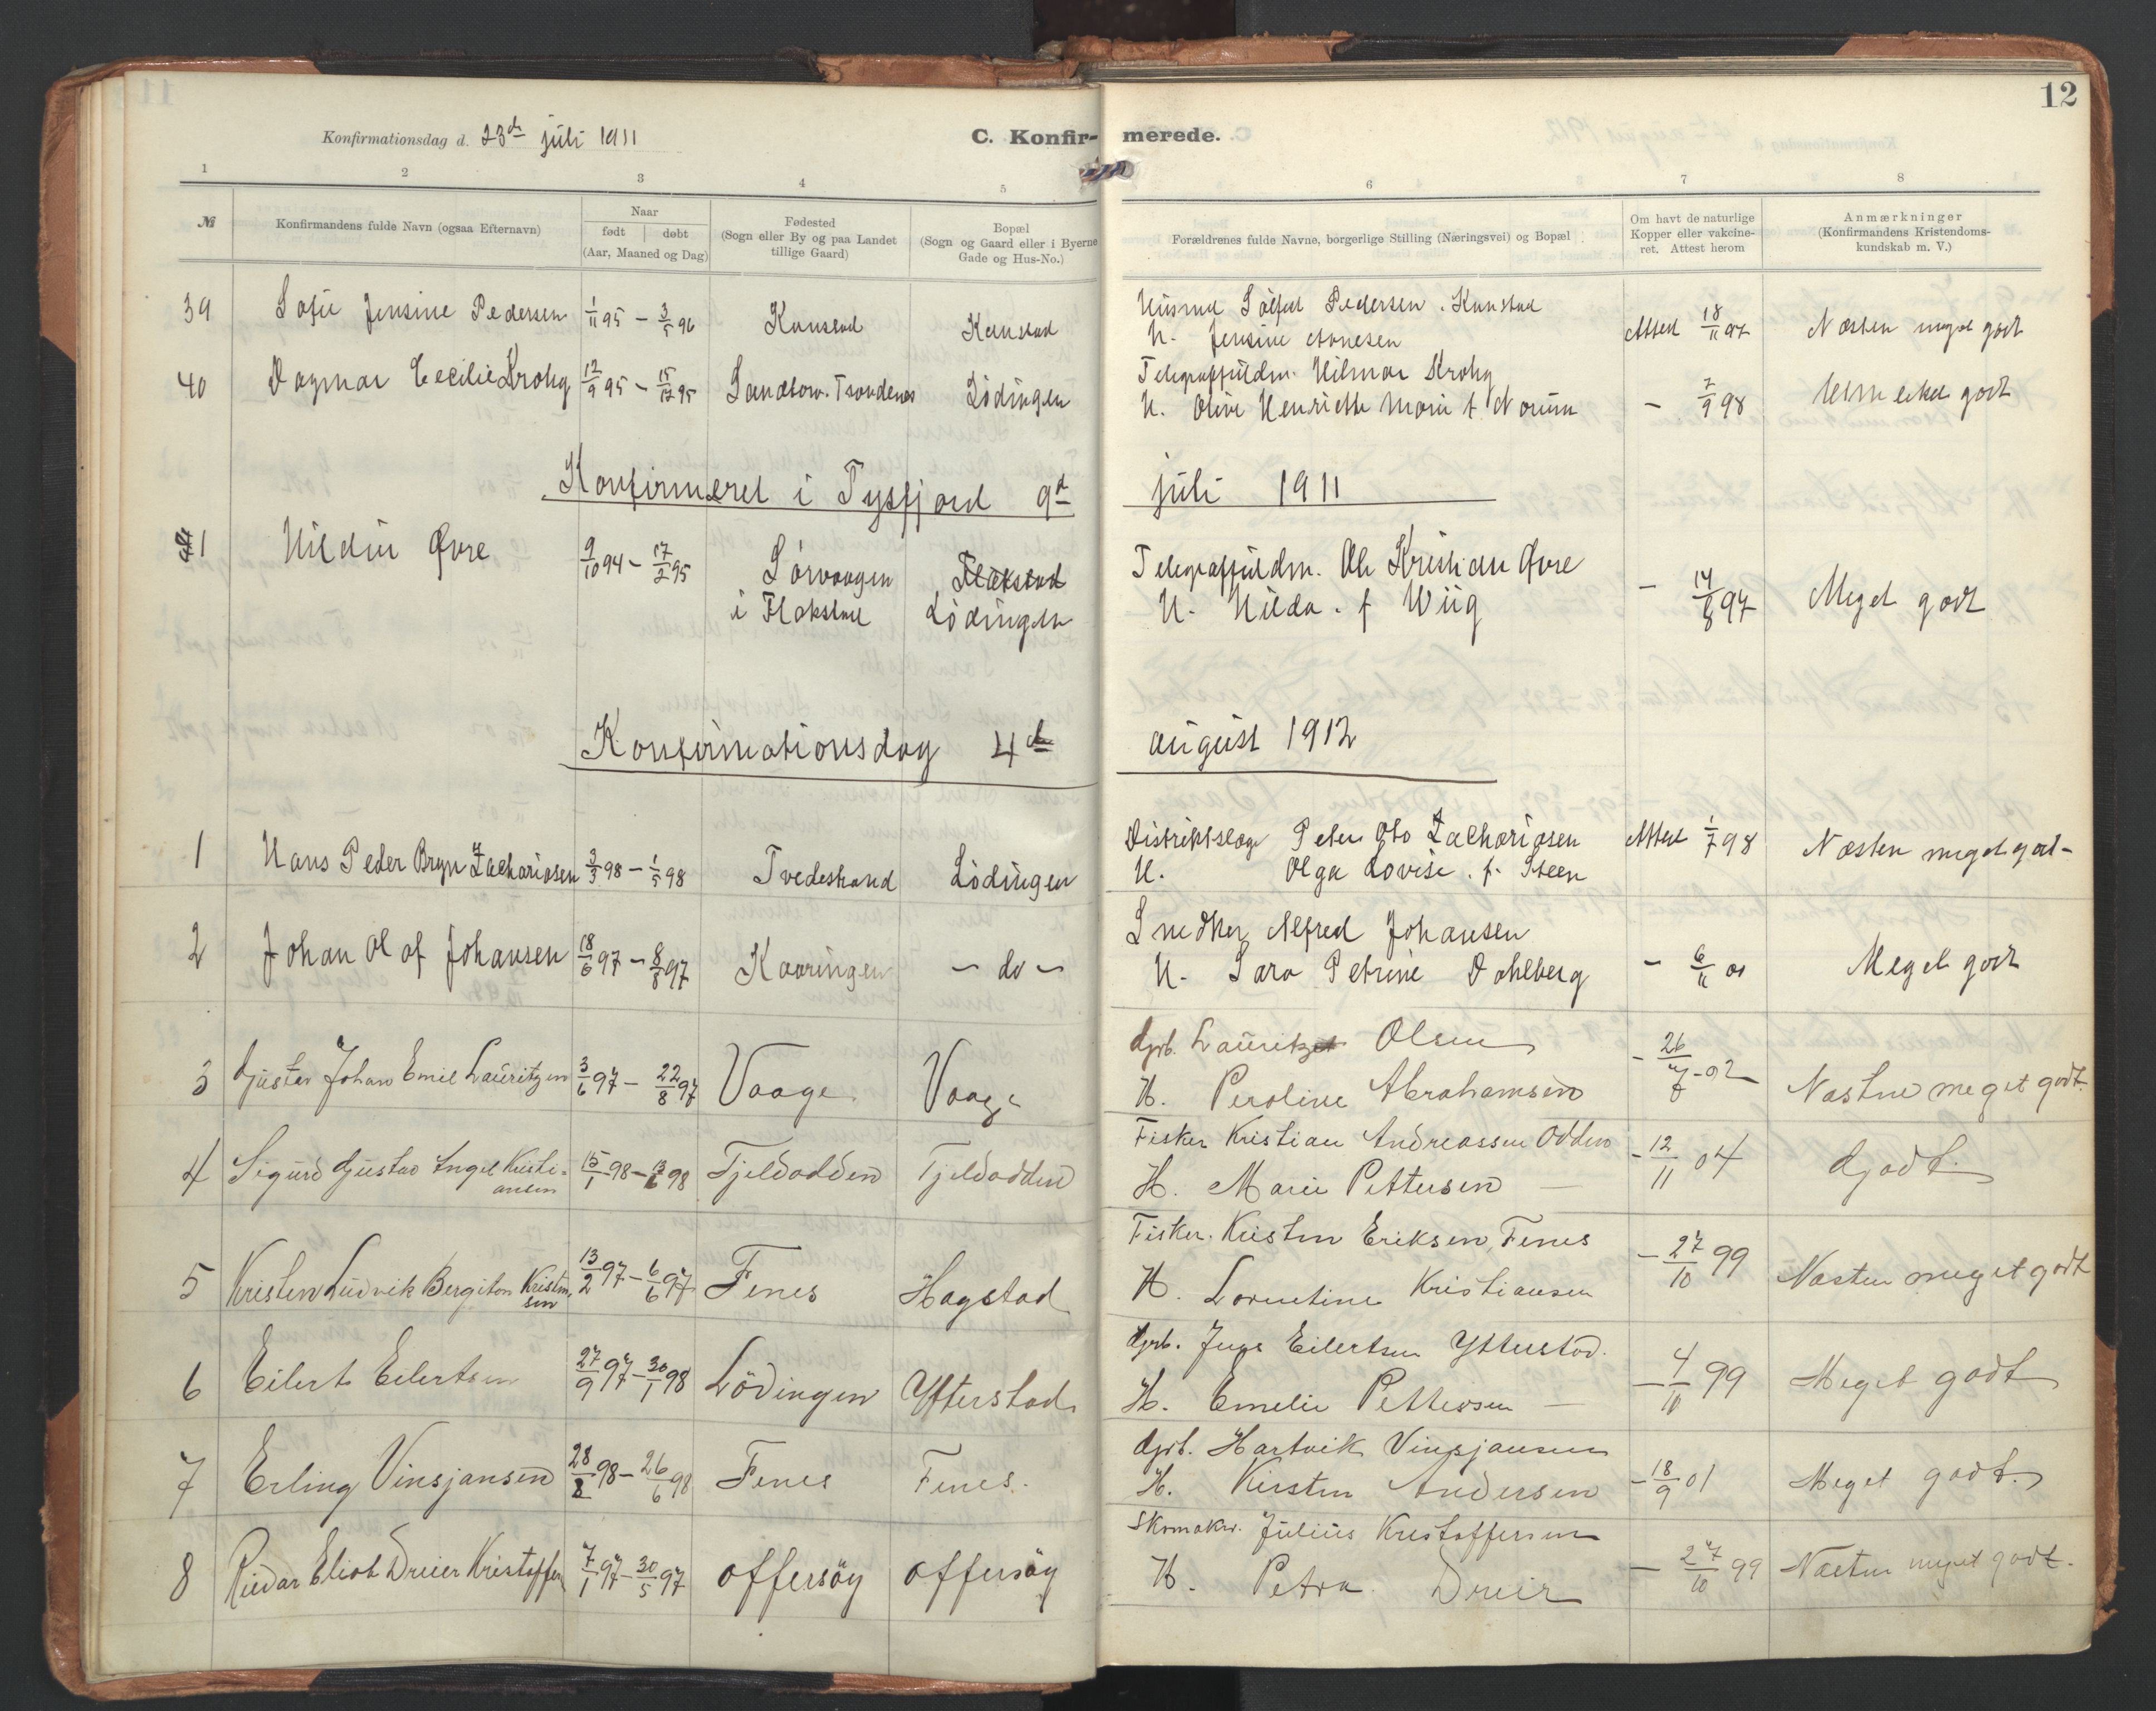 Konfirmationsdag d. 23de juli 1911 C. Konfir- merede. 12
1 2 3 4 5 6 7 8
№ Konfirmandens fulde Navn (ogsaa Efternavn) Naar født døbt (Aar, Maaned og Dag) Fødested (Sogn eller By og paa Landet tillige Gaard) Bopæl (Sogn og Gaard eller i Byerne Gade og Hus-No.) Forældrenes fulde Navne, borgerlige Stilling (Næringsvei) og Bopæl Om havt de naturlige Kopper eller vakcineret. Attest herom Anmærkninger (Konfirmandens Kristendomskundskab m. V.)
39 Sofie Jensine Pedersen 1/11 95 – 3/5 96 Kanstad Kanstad Husmd Sølfest Pedersen. Kanstad Attest 18/11 97 Næsten meget godt
H. Jensine Arnesen
40 Dagmar Cecilie Krohg 12/9 95 – 15/12 95 Sandtorv. Trondenes Lödingen Telegraffuldm. Hilmar Krohg – 7/9 98 Udmerket godt
H. Oline Henriette Marie f. Norum
Konfirmeret i Tysfjord 9d juli 1911
1 Hildur Øvre 9/10 94 – 17/2 95 Sørvaagen Flakstad Telegraffuldm. Ole Kristian Øvre – 14/8 97 Meget godt
i Flakstad Lödingen H. Hilda. f Wiig
Konfirmationsdag 4de august 1912
1 Hans Peder Bryn Zachariasen 3/3 98 – 1/5 98 Tvedestrand Lödingen Distriktslæge Peter Oto Zachariasen Attest 1/7 98 Næsten meget godt –
H. Olga Lovise. f. Steen
2 Johan Olaf Johansen 18/6 97 – 8/8 97 Kaaringen – do – Snedker Alfred Johansen – 6/11 01 Meget godt
H. Sara Petrine Dahlberg
3 Gustav Johan Emil Lauritzen 3/6 97 – 22/8 97 Vaage Vaage Grb. Lauritz Olsen – 26/7 02 Næstne meget godt.
H. Peroline Abrahamsen
4 Sigurd Gustav Ingel Kristi- 15/1 98 – 12/6 98 Tjeldodden Tjeldodden Fisker Kristian Andreassen Odden – 12/11 04 Godt.
ansen H. Marie Pettersen –
5 Kristen Ludvik Bergiton Kristen- 13/2 97 – 6/6 97 Fenes Hagstad Fisker. Kristen Eriksen, Fenes – 27/10 99 Næsten meget godt
sen H. Lorentine Kristiansen
6 Eilert Eilertsen 27/9 97 – 30/1 98 Lödingen Ytterstad Grb. Jens Eilertsen Ytterstad. – 4/10 99 Meget godt
H. Emelie Pettersen –
7 Erling Vinsjansen 28/2 98 – 26/6 98 Fenes Fenes. Grb. Hartvik Vinsjansen – 18/9 01 Meget godt.
H. Kirsten Andersen
8 Reidar Eliot Dreier Kristoffer 7/1 97 – 30/5 97 Offersöy Offersöy Skomaker. Julius Kristoffersen – 27/10 99 Næsten meget godt.
H. Petra Dreier